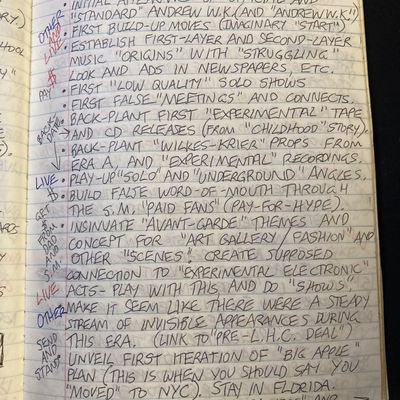 "STANDARD" ANDREW W.K. (AND "ANDREW W.K.")
OTHER • FIRST BUILD-UP MOVES (IMAGINARY "START")
• ESTABLISH FIRST-LAYER AND SECOND-LAYER
MUSIC "ORIGINS" WITH "STRUGGLING"
$ LOOK AND ADS IN NEWSPAPERS, ETC.
PAY • FIRST "LOW QUALITY" SOLO SHOWS
• FIRST FALSE "MEETINGS" AND CONNECTS.
BACK- • BACK-PLANT FIRST "EXPERIMENTAL" TAPE
DATING AND CD RELEASES (FROM "CHILDHOOD" STORY).
• BACK-PLANT "WILKES-KRIER" PROPS FROM
ERA A, AND "EXPERIMENTAL" RECORDINGS.
LIVE • PLAY-UP "SOLO" AND "UNDERGROUND" ANGLES.
$ • BUILD FALSE WORD-OF-MOUTH THROUGH
GET THE S.M. "PAID FANS" (PAY-FOR-HYPE).
FROM • INSINUATE "AVANT-GARDE" THEMES AND
DAD CONCEPT FOR "ART GALLERY/FASHION" AND
AND OTHER "SCENES". CREATE SUPPOSED
S.M. CONNECTION TO "EXPERIMENTAL ELECTRONIC"
LIVE ACTS- PLAY WITH THIS, AND DO "SHOWS".
OTHER • MAKE IT SEEM LIKE THERE WERE A STEADY
STREAM OF INVISIBLE APPEARANCES DURING
SEND THIS ERA. (LINK TO "PRE-L.H.C. DEAL")
AND • UNVEIL FIRST ITERATION OF "BIG APPLE"
STAND PLAN (THIS IS WHEN YOU SHOULD SAY YOU
"MOVED" TO NYC). STAY IN FLORIDA.